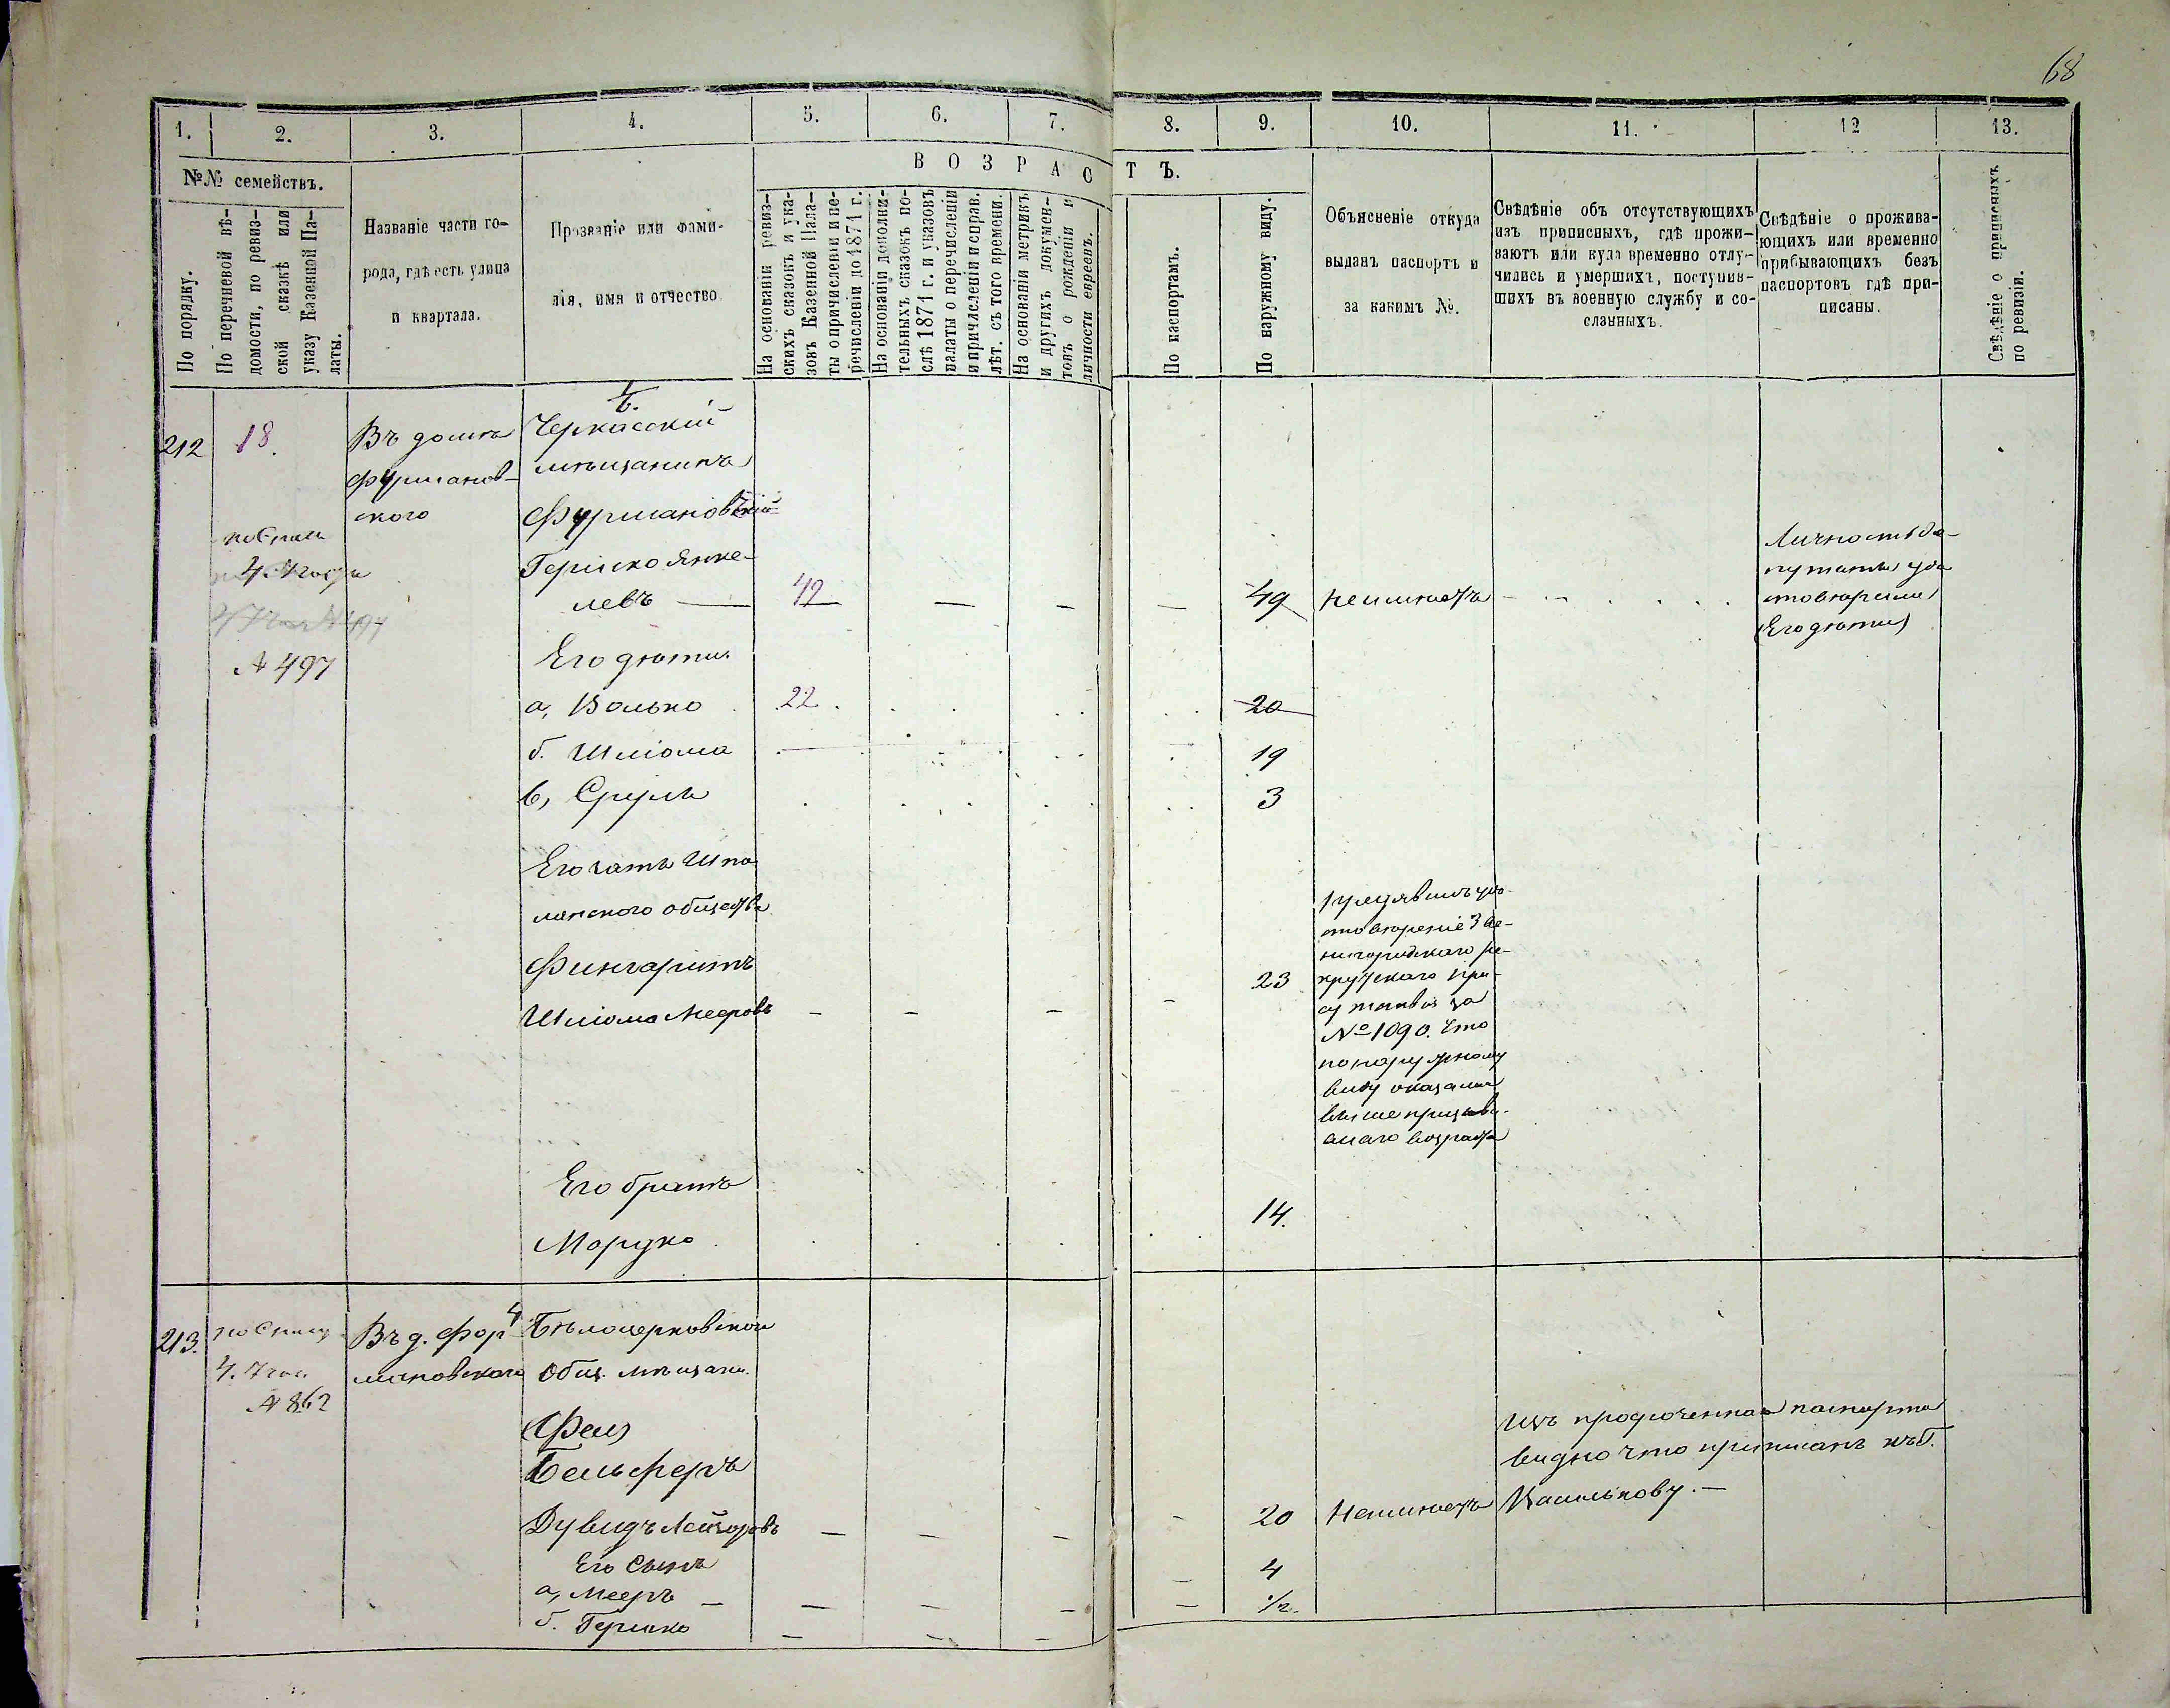 68
1. 2. 3. 4. 5. 6. 7. 8. 9. 10. 11. 12 13.
№№ семействъ.
По порядку.
По перечневой вѣ-
домости, по ревиз-
ской сказкѣ или
указу Казенной Па-
латы.
Названіе части го-
рода, гдѣ есть улица
и квартала.
Прозваніе или фами-
лія, имя и отчество
ВОЗРАСТЪ.
На основаніи ревиз-
скихъ сказокъ и ука-
зовъ Казенной Пала-
ты о причисленіи и пе-
речисленіи до 1871 г.
На основаніи дополни-
тельныхъ сказокъ по-
слѣ 1871 г. и указовъ
палаты о перечисленіи
и причисленіи и справ.
лѣт. съ того времени.
На основаніи метрикъ
и другихъ докумен-
товъ о рожденіи и
личности евреевъ.
По паспортамъ.
По наружному виду.
Объясненіе откуда
выданъ паспортъ и
за какимъ №.
Свѣдѣніе объ отсутствующихъ
изъ приписныхъ, гдѣ прожи-
ваютъ или куда временно отлу-
чились и умершихъ, поступив-
шихъ въ военную службу и со-
сланныхъ.
Свѣдѣніе о прожива-
ющихъ или временно
прибывающихъ безъ
паспортовъ гдѣ при-
писаны.
Свѣдѣніе о приписныхъ
по ревизіи.
212 18. Въ домѣ
Фурманов-
ского
№ 497
Черкасскій
мѣщанинъ
Фурмановскій
Гершко Янке-
левъ — 42 — — — 49 неимѣетъ
Личность де-
путаты удо
стовѣрили
Его дѣти
Его дѣти
а, Волько 22. 20
б. Шліома 19
в, Сруль 3
Его зять Шпо
лянского общества
Фингаритъ
Шліома Мееровъ — — — — 23
Предявилъ удо-
стовѣреніе Зве-
нигородскаго ре-
крутскаго при-
сутствія за
№ 1090. Что
по наружному
виду оказался
выше призыв-
наго возраста
Его братъ
Мордко 14.
213. Въ д. Фор
мановскаго
№ 862
Бѣлоцерковской
Общ. мѣщани.
Фел
Бельферъ
Дувидъ Лейзоровъ — — — — 20 Неимѣетъ
Изъ просроченнаго паспорта
видно что приписанъ къ г.
Василькову. —
Его сынъ
а, Мееръ — — — — 4
б. Гершко — — — — 1/2.